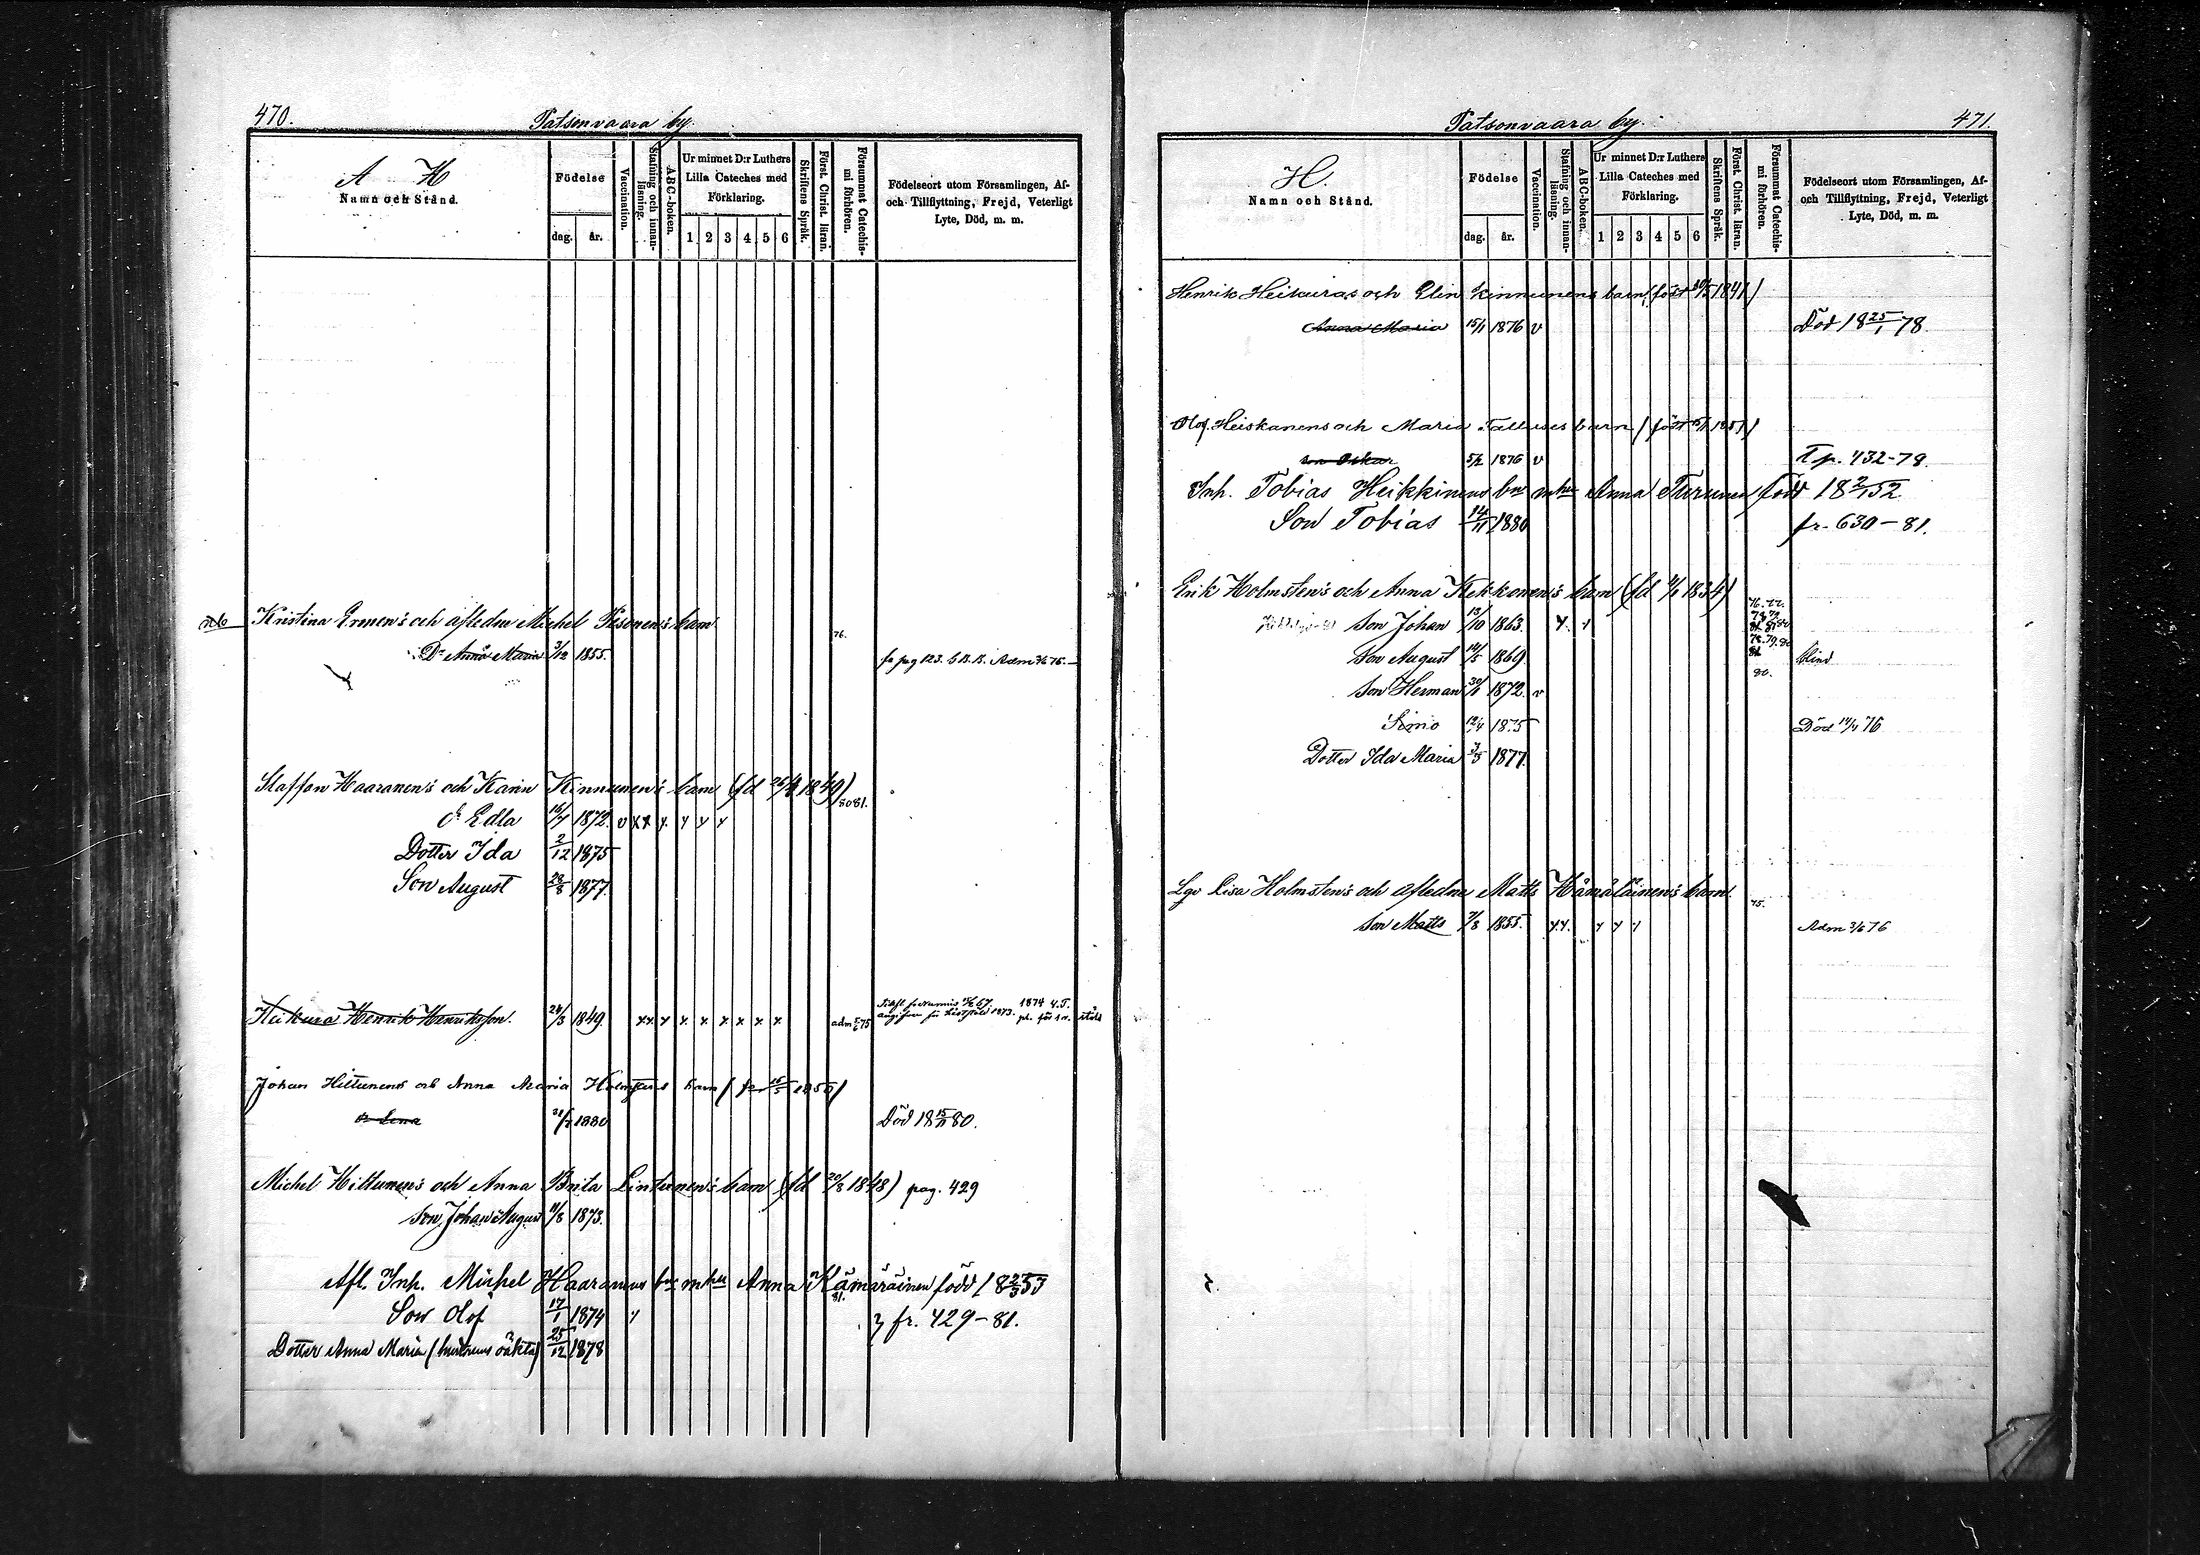 470.
Patsonvaara by.
A H
Namn och Stånd.
Födelse
dag. år.
Vaccination.
Stafning och innanläsning.
ABC-boken.
Ur minnet D:r Luthers Lilla Cateches med Förklaring.
1 2 3 4 5 6
Skriftens Språk.
Först. Christ. läran.
Försummat Catechismi förhören.
Födelseort utom Församlingen, Af- och Tillflyttning, Frejd, Veterligt Lyte, Död, m. m.
Kristina Eronen's och afledne Michel Pesonen's barn 76.
Dr Anna Maria 3/12 1855. fr pag 123. Adm 75.
Staffan Haaranen's och Karin Kinnunen's barn (fd 26/4 1849) 80 81.
dr Edla 16/7 1872 v
Dotter Ida 2/12 1875
Son August 28/8 1877.
Heikura Henrik Henriksson. 24/3 1849. adm 75
Johan Hittunens och Anna Maria Holmstens barn
dr Lena 1880 Död 18 15/11 80.
Michel Hittunen's och Anna Brita Lintunen's barn (fd 20/8 1848) pag. 429
Son Johan August 11/8 1873.
Afl. Inh. Michel Haaranens bn m hu Anna Kämäräinen född 18 2/3 53
81.
Son Olof 17/1 1874 fr. 429-81.
Dotter Anna Maria (hustruns oäkta) 25/12 1878
Patsonvaara by. 471.
H.
Namn och Stånd.
Födelse
dag. år.
Vaccination.
Stafning och innanläsning.
ABC-boken.
Ur minnet D:r Luthers Lilla Cateches med Förklaring.
1 2 3 4 5 6
Skriftens Språk.
Först. Christ. läran.
Försummat Catechismi förhören.
Födelseort utom Församlingen, Af- och Tillflyttning, Frejd, Veterligt Lyte, Död, m. m.
Henrik Heikuras och Elin Kinnunens barn (född 1841)
Anna Maria 15/1 1876 v Död 18 25/1 78.
Olof Heiskanens och Maria barn (född 1851)
son Oskar 5/2 1876 v T p. 432-78.
Inh. Tobias Heikkinens bn m hu Anna Turunen född 18 2/1 52.
Son Tobias 14/11 1880 fr. 630-81.
Erik Holmsten's och Anna Kekkonen's barn (fd 1834)
Son Johan 13/10 1863.
Son August 14/5 1869. blind
Son Herman 30/1 1872. v 80.
Simo 12/4 1875 Död 14/4 76
Dotter Ida Maria 3/5 1877.
Lgv Lisa Holmsten's och afledne Matts Hämäläinen's barn. 75.
Son Matts 7/8 1855. Adm 76